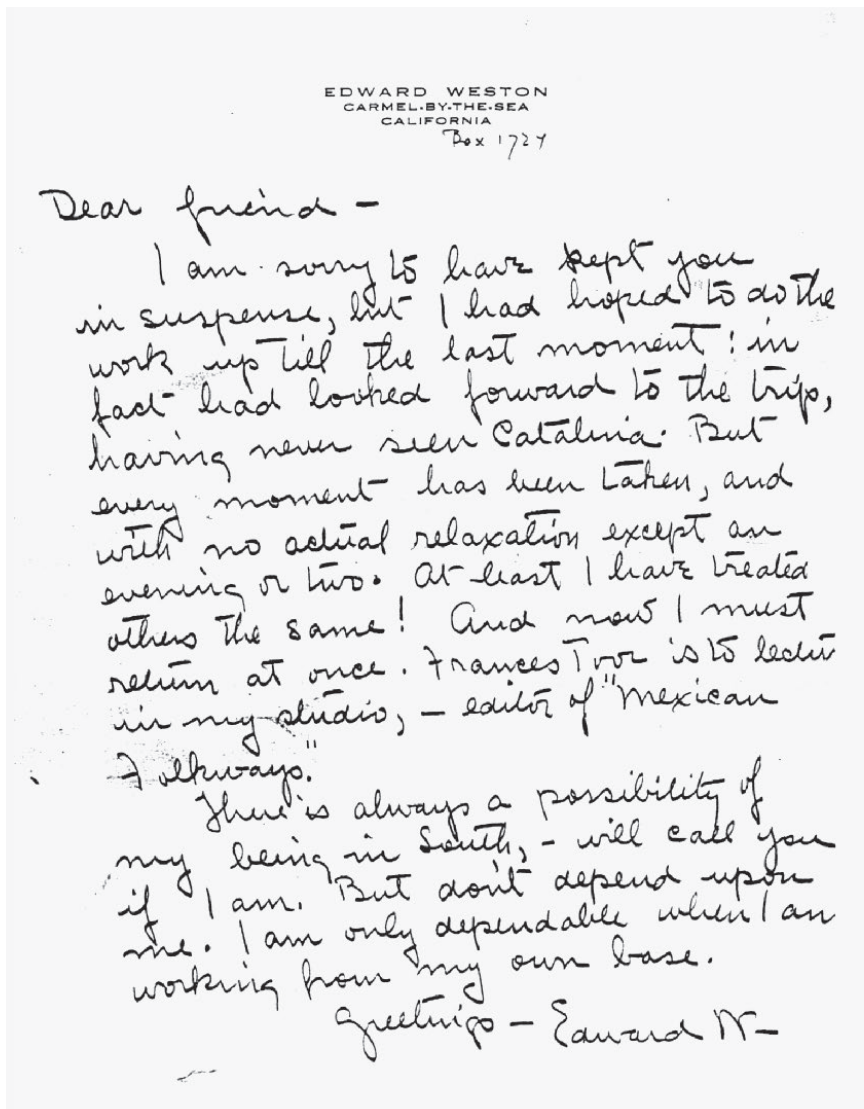 EDWARD WESTON
CARMEL-BY-THE-SEA
CALIFORNIA
Box 1724
Dear friend –
I am sorry to have kept you
in suspense, but I had hoped to do the
work up till the last moment: in
fact had looked forward to the trip,
having never seen Catalina. But
every moment has been taken, and
with no actual relaxation except an
evening or two. At least I have treated
others the same! And now I must
return at once. Frances Toor is to lecture
in my studio, – editor of "Mexican
Folkways."
There is always a possibility of
my being in South, – will call you
if I am. But don't depend upon
me. I am only dependable when I am
working from my own base.
Greetings – Edward W–